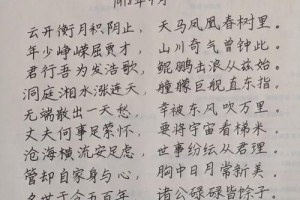 1918年4月
云开衡月积阴止， 天马凤凰春树里。
年少峥嵘屈贾才， 山川奇气曾钟此。
君行吾为发浩歌， 鲲鹏击浪从兹始。
洞庭湘水涨连天， 艟艨巨舰直东指。
无端散出一天愁， 幸被东风吹万里。
丈夫何事足萦怀， 要将宇宙看稊米。
沧海横流安足虑， 世事纷纭从君理。
管却自家身与心， 胸中日月常新美。
名世于今五百年， 诸公碌碌皆馀子。